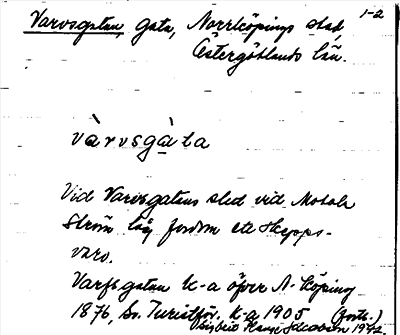 1-2
Varvsgatan, gata, Norrköpings stad,
Östergötlands län.
vàrvsgàta
Vid Varvsgatans slut vid Motala
Ström låg fordom ett skepps-
varv.
Varfsgatan k-a öfver N-köping
1876, Sv. Turistför. k-a 1905 (forts.)
1942.